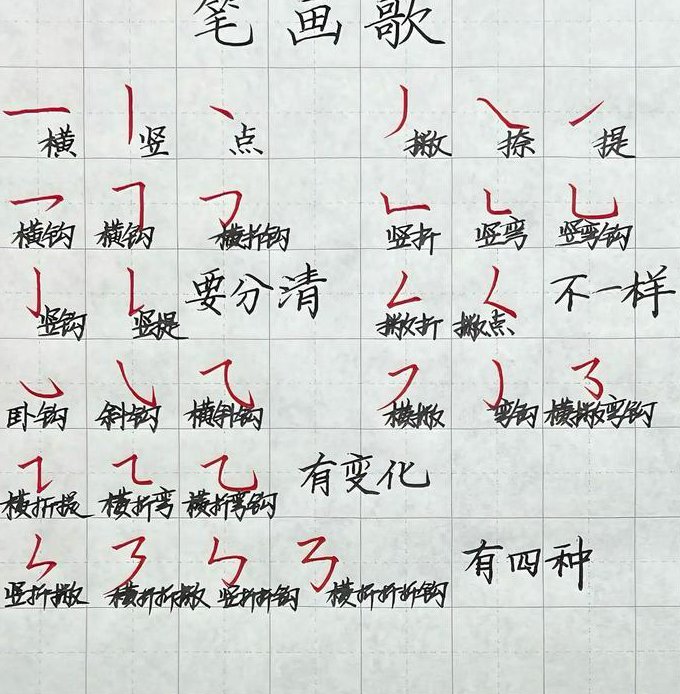 笔画歌
横 竖 点 撇 捺 提
横钩 横钩 横折钩 竖折 竖弯 竖弯钩
竖钩 竖提 要分清 撇折 撇点 不一样
卧钩 斜钩 横斜钩 横撇 弯钩 横撇弯钩
横折提 横折弯 横折弯钩 有变化
竖折撇 横折折撇 竖折折钩 横折折折钩 有四种